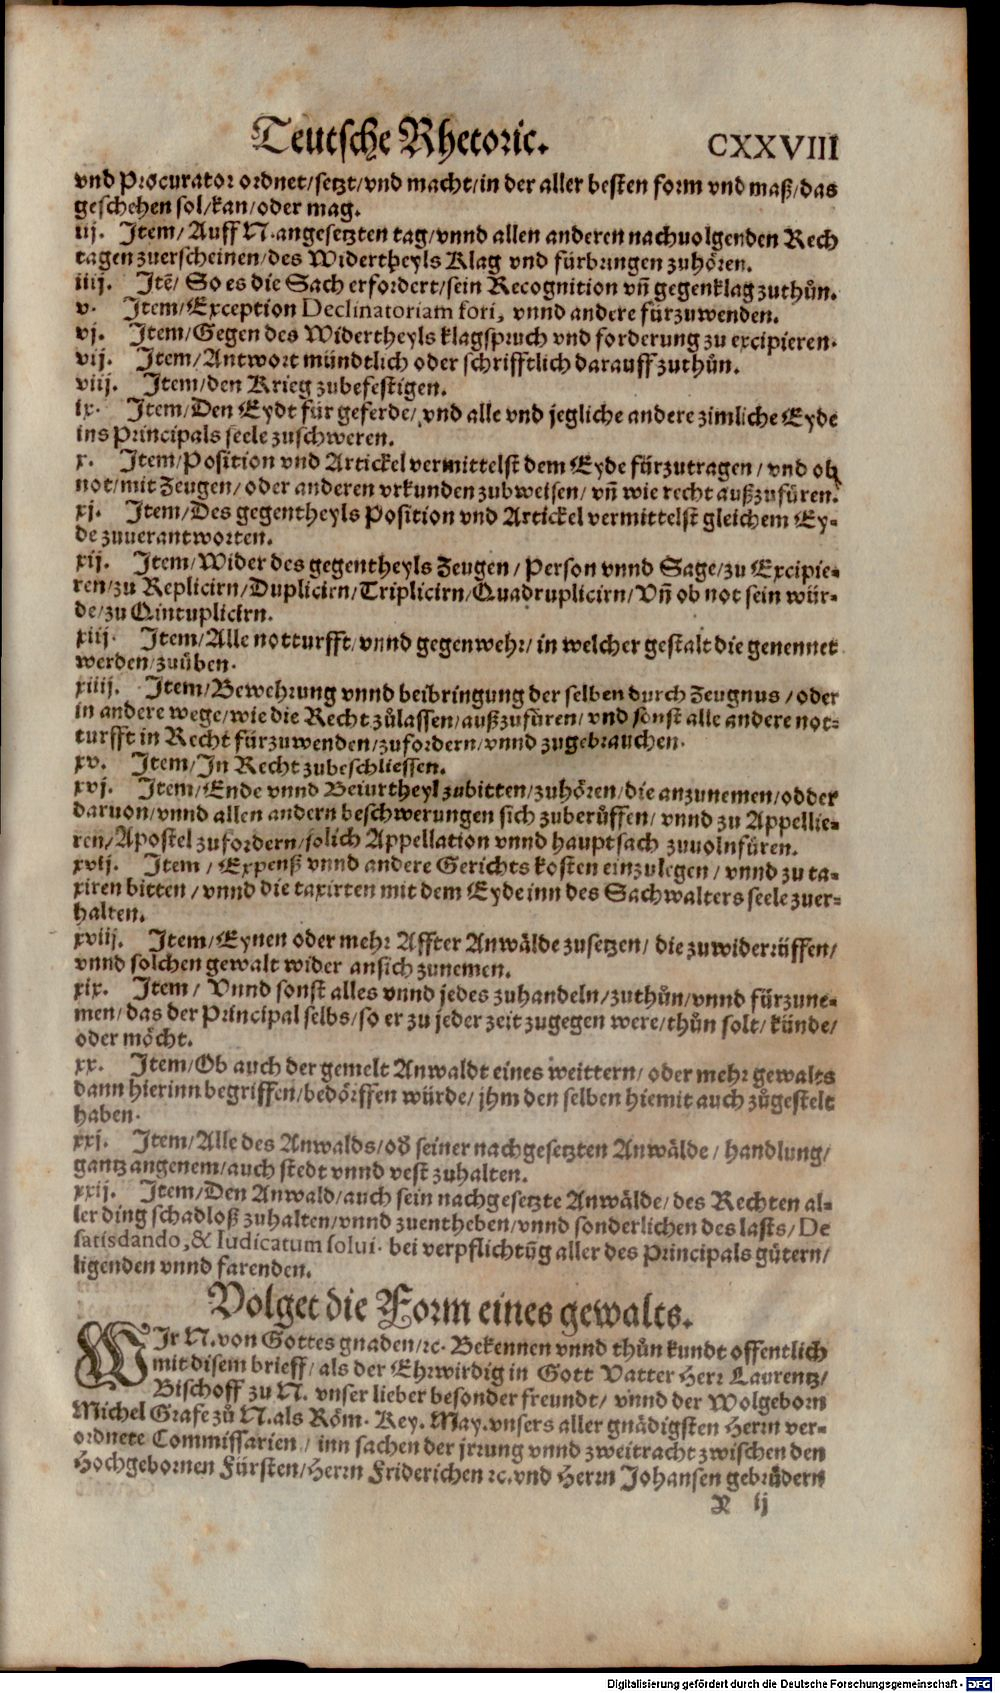 Teutsche Rhetoric. CXXVIII
vnd Procurator ordnet/setzt/vnd macht/in der aller besten form vnd maß/das
geschehen sol/kan/oder mag.
iij. Item/Auff N.angesetzten tag/vnnd allen anderen nachuolgenden Rech
tagen zuerscheinen/des Widertheyls Klag vnd fürbringen zuhören.
iiij. Itē/ So es die Sach erfordert/sein Recognition vñ gegenklag zuthůn.
v. Item/Exception Declinatoriam fori, vnnd andere fürzuwenden.
vj. Item/Gegen des Widertheyls klagspruch vnd forderung zu excipieren.
vij. Item/Antwort mündtlich oder schrifftlich darauff zuthůn.
viij. Item/den Krieg zubefestigen.
ix. Item/Den Eydt für geferde/vnd alle vnd jegliche andere zimliche Eyde
ins Principals seele zuschweren.
x. Item/Position vnd Artickel vermittelst dem Eyde fürzutragen/ vnd ob
not/mit Zeugen/ oder anderen vrkunden zubweisen/ vñ wie recht außzufüren.
xj. Item/Des gegentheyls Position vnd Artickel vermittelst gleichem Ey-
de zuuerantworten.
xij. Item/Wider des gegentheyls Zeugen/ Person vnnd Sage/zu Excipie-
ren/zu Replicirn/Duplicirn/Triplicirn/Quadruplicirn/Vñ ob not sein wür-
de/zu Qintuplicirn.
xiij. Item/Alle notturfft/vnnd gegenwehr/ in welcher gestalt die genennet
werden/zuüben.
xiiij. Item/Bewehrung vnnd beibringung der selben durch Zeugnus/oder
in andere wege/wie die Recht zůlassen/außzufüren/ vnd sonst alle andere not-
turfft in Recht fürzuwenden/zufordern/vnnd zugebrauchen.
xv. Item/In Recht zubeschliessen.
xvj. Item/Ende vnnd Beiurtheyl zubitten/zuhören/die anzunemen/odder
daruon/vnnd allen andern beschwerungen sich zuberůffen/ vnnd zu Appellie-
ren/Apostel zufordern/solich Appellation vnnd hauptsach zuuolnfüren.
xvij. Item / Expenß vnnd andere Gerichts kosten einzulegen/ vnnd zu ta-
xiren bitten/ vnnd die taxirten mit dem Eyde inn des Sachwalters seele zuer-
halten.
xviij. Item/Eynen oder mehr Affter Anwälde zusetzen/ die zuwiderrüffen/
vnnd solchen gewalt wider ansich zunemen.
xix. Item/ Vnnd sonst alles vnnd jedes zuhandeln/zuthůn/vnnd fürzune-
men/das der Principal selbs/so er zu jeder zeit zugegen were/thůn solt/ künde/
oder möcht.
xx. Item/Ob auch der gemelt Anwaldt eines weittern/ oder mehr gewalts
dann hierinn begriffen/bedörffen würde/ jhm den selben hiemit auch zůgestelt
haben.
xxj. Item/Alle des Anwalds/od̕ seiner nachgesetzten Anwälde/ handlung/
gantz angenem/auch stedt vnnd vest zuhalten.
xxij. Item/Den Anwald/auch sein nachgesetzte Anwälde/des Rechten al-
ler ding schadloß zuhalten/vnnd zuentheben/vnnd sonderlichen des lasts/ De
satisdando, & Iudicatum solui. bei verpflichtũg aller des Principals gütern/
ligenden vnnd farenden.
Volget die Form eines gewalts.
WIr N. von Gottes gnaden/ꝛc. Bekennen vnnd thůn kundt offentlich
mit disem brieff/ als der Ehrwirdig in Gott Vatter Herr Laurentz/
Bischoff zu N. vnser lieber besonder freundt/ vnnd der Wolgeborn
Michel Grafe zů N.als Röm. Key. May.vnsers aller gnädigsten Herrn ver-
ordnete Commissarien / inn sachen der jrrung vnnd zweitracht zwischen den
Hochgebornen Fürsten/Herrn Friderichen ꝛc.vnd Herrn Johansen gebrüdern
X ij
Digitalisierung gefördert durch die Deutsche Forschungsgemeinschaft - DFG